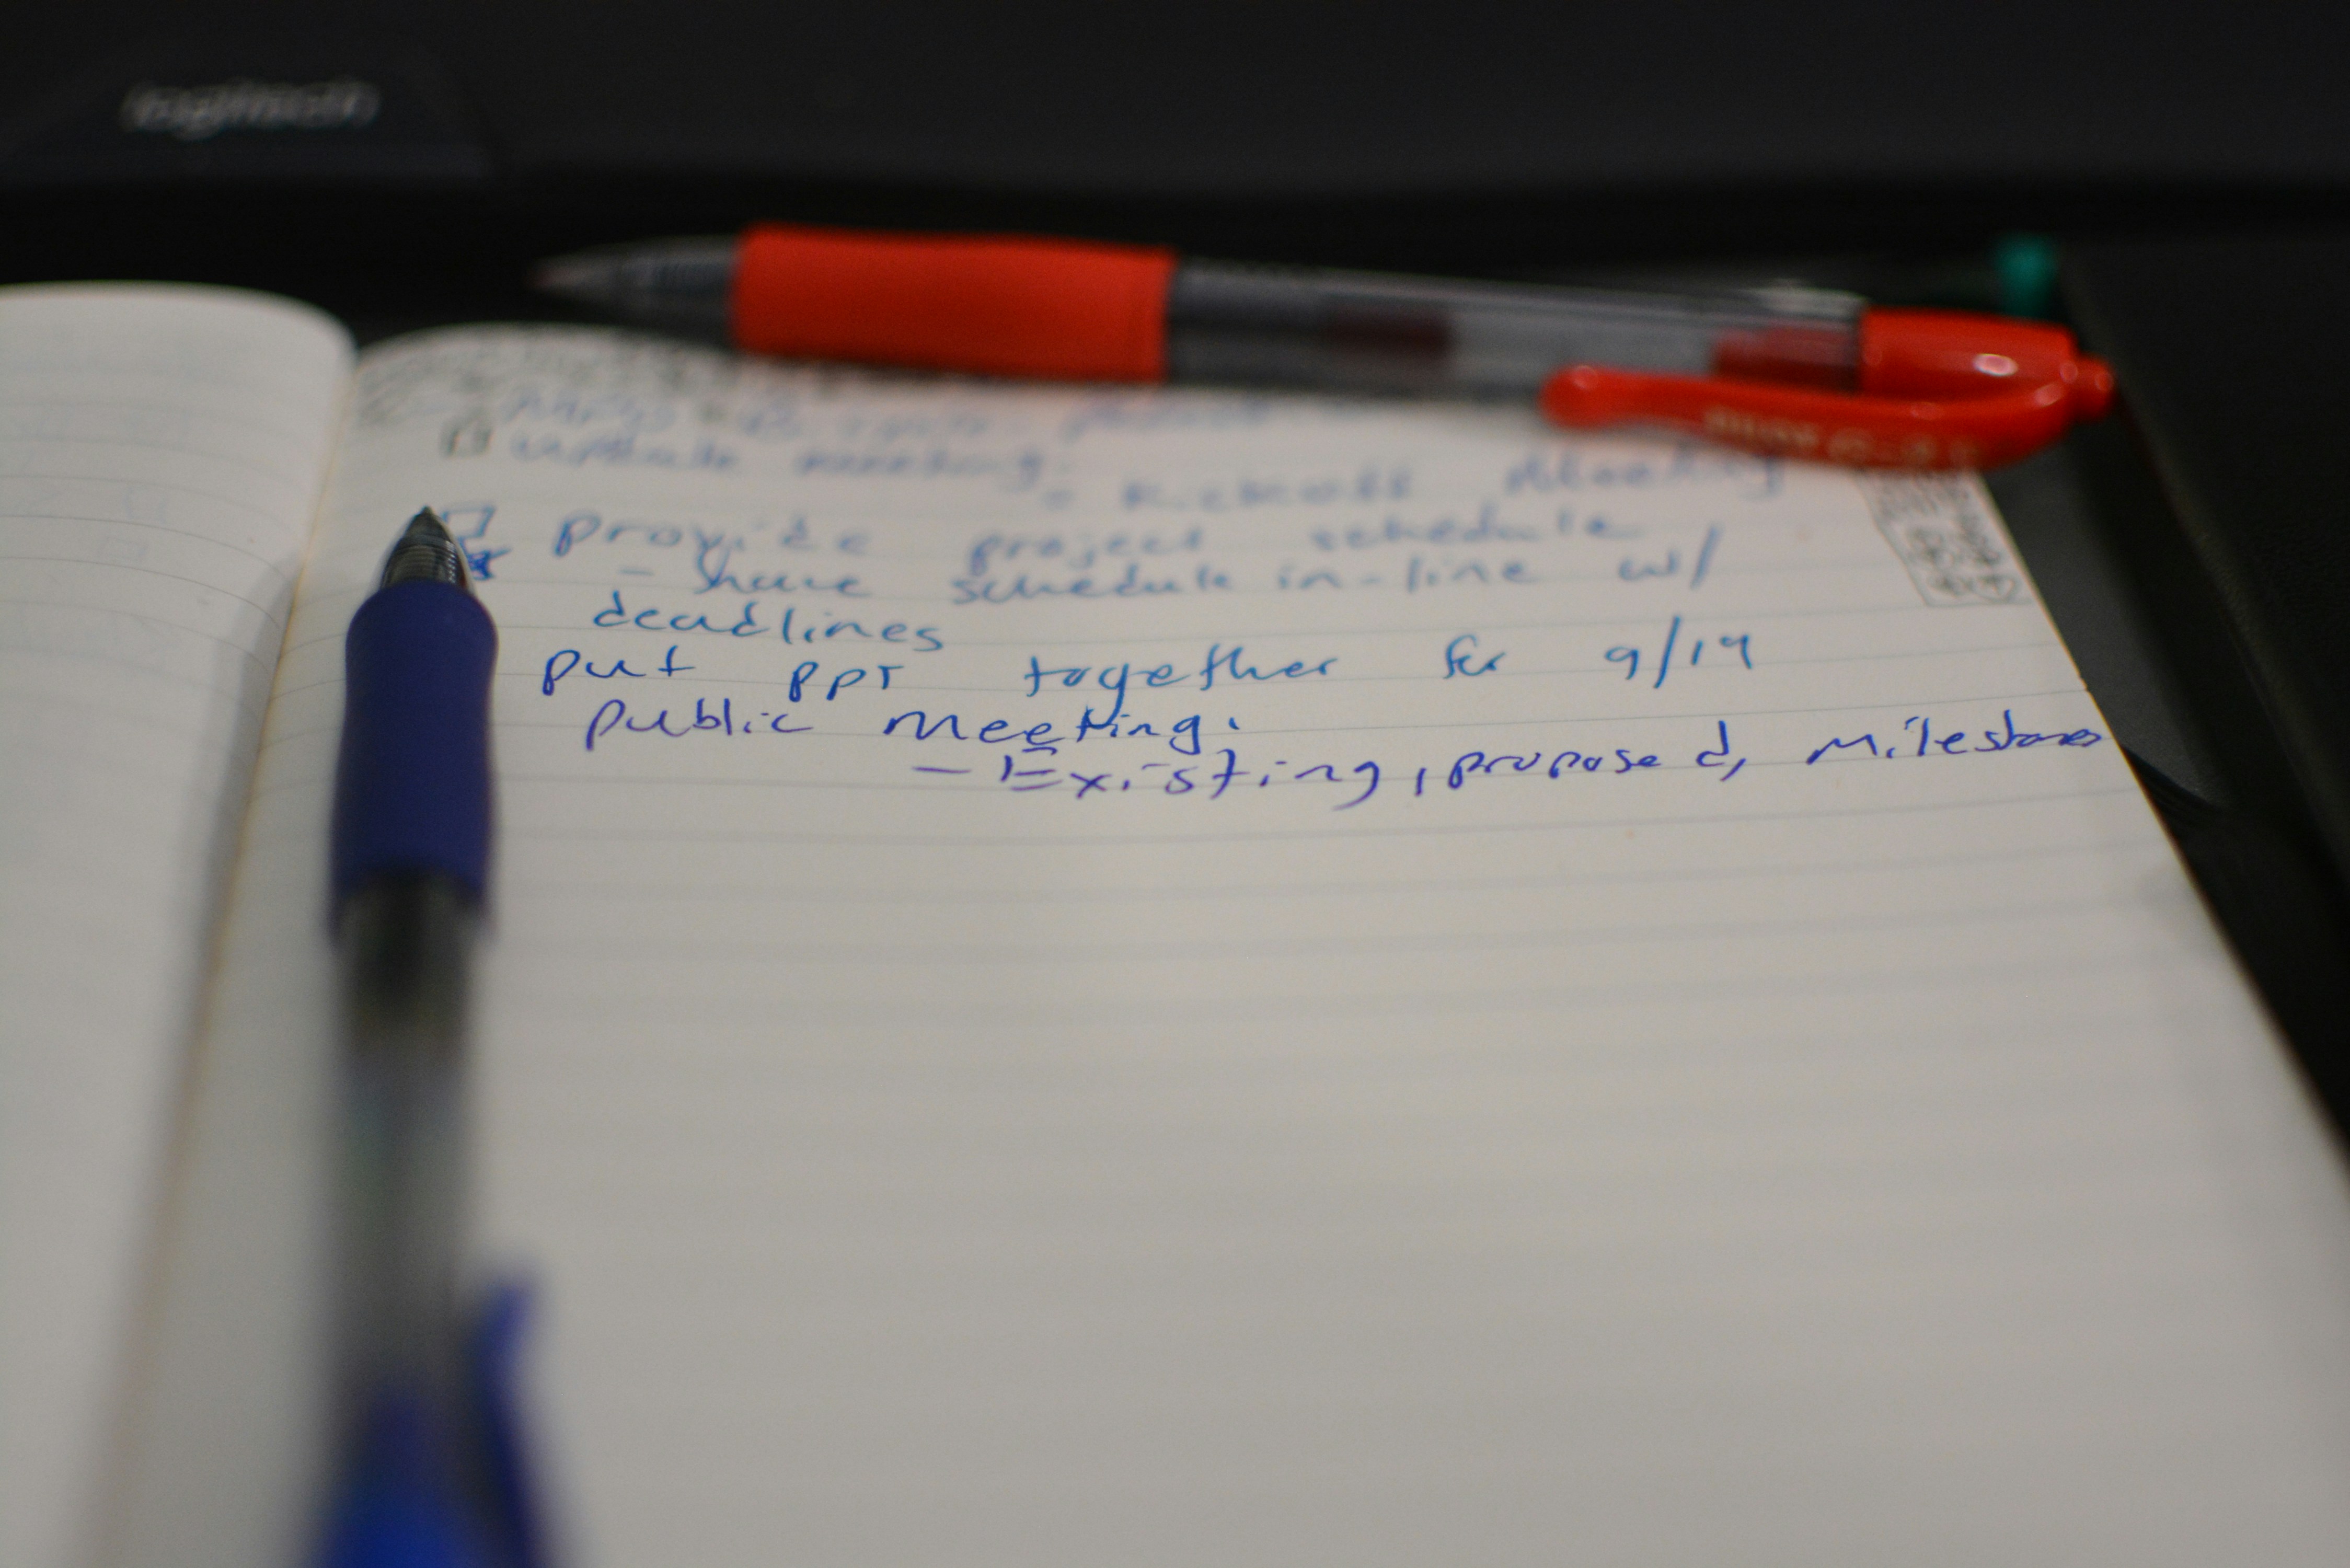 logitech
update meeting.
- Kickoff Meeting
Provide project schedule
- share schedule in-line w/
deadlines
put ppt together for 9/19
public meeting.
- Existing, proposed, milestones